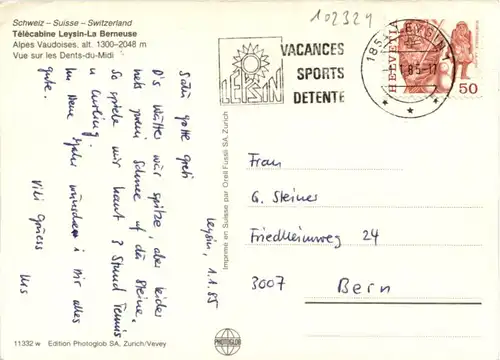 Schweiz – Suisse – Switzerland
Télécabine Leysin-La Berneuse
Alpes Vaudoises, alt. 1300-2048 m
Vue sur les Dents-du-Midi
102324
LEYSIN
VACANCES
SPORTS
DETENTE
1854 LEYSIN 1
1.85-17
HELVETIA
50
Salü gotte Greti
D's Wätter wär spitze, aber leider
hets kei Schnee uf de Steine.
So spiele mir haut 3 Stund Tennis
u Curling.
Im Neue Jahr wünschen i Dir alles
gute.
Vili Grüess
Urs
Leysin, 1.1.85
Imprimé en Suisse par Orell Füssli SA, Zurich
Frau
G. Steiner
Friedheimweg 24
3007 Bern
11332 w Edition Photoglob SA, Zurich/Vevey
PHOTOGLOB